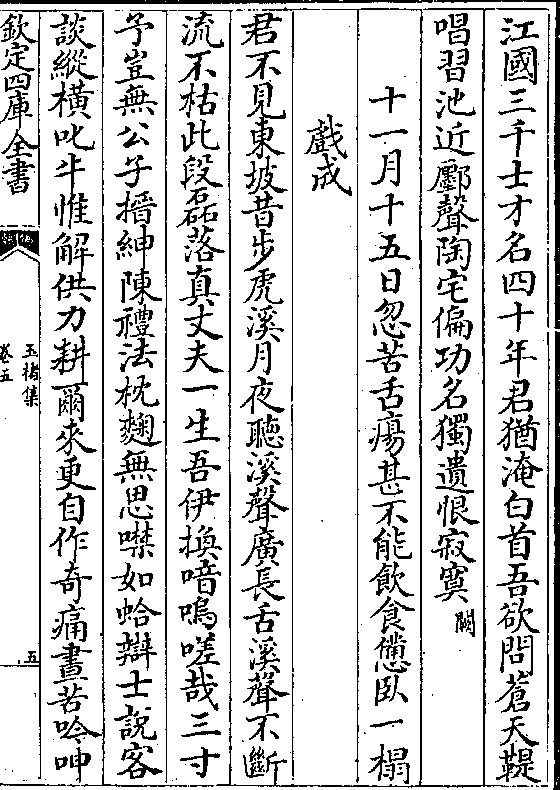 江國三千士才名四十年君猶淹白首吾欲問蒼天鞮
唱習池近酈聲陶宅偏功名獨遺恨寂寞闕
十一月十五日忽苦舌瘍甚不能飲食憊臥一榻
戲成
君不見東坡昔步虎溪月夜聽溪聲廣長舌溪聲不斷
流不枯此段磊落真丈夫一生吾伊換喑嗚嗟哉三寸
予豈無公子搢紳陳禮法枕麴無思噤如蛤辯士說客
談縱橫叱牛惟解供力耕爾來更自作奇痛晝苦吟呻
欽定四庫全書
玉楮集
卷五
五